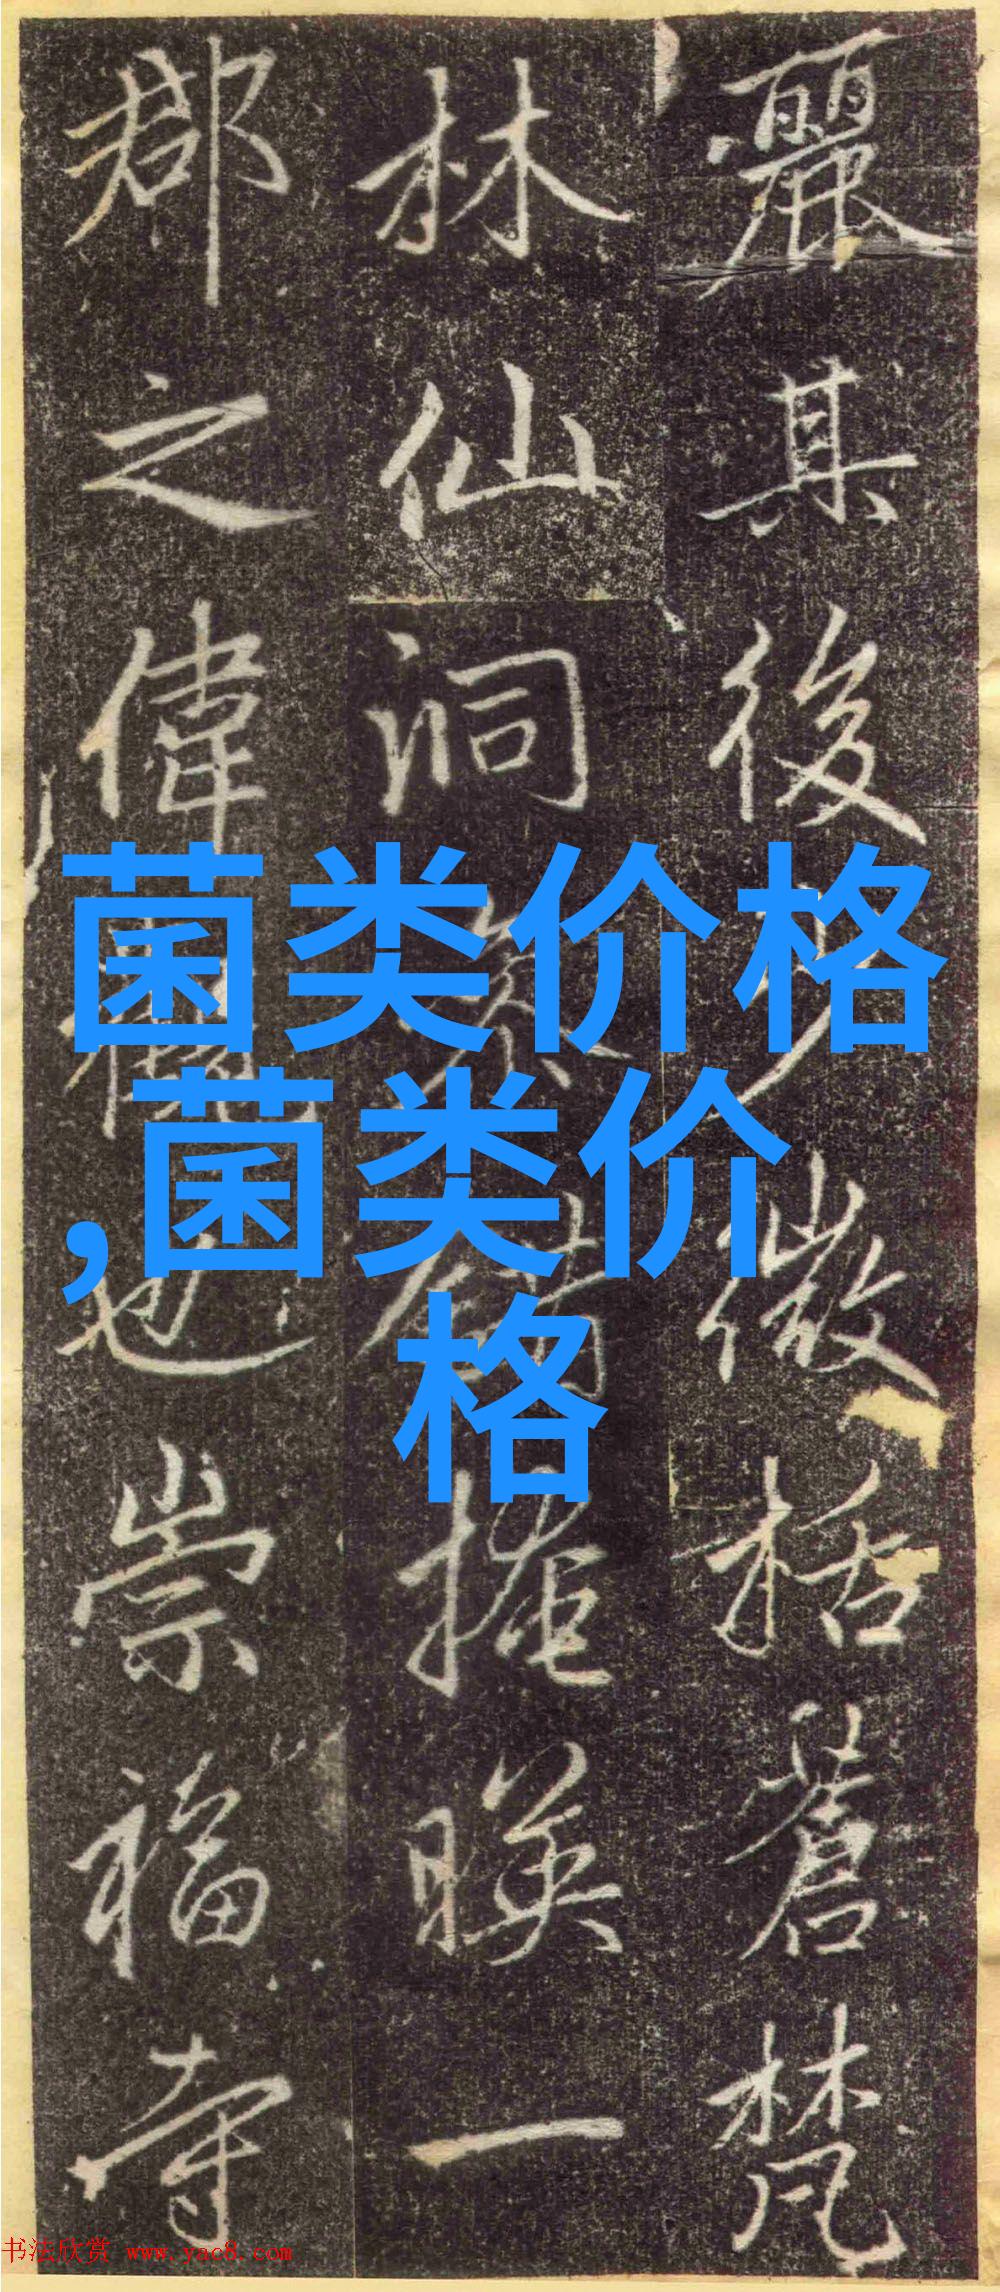 麗其後少微括蒼梵
林仙洞參錯掩暎一
郡之偉觀也崇福寺
菌类价格
,菌类价
格
书法欣赏 www.yac8.com